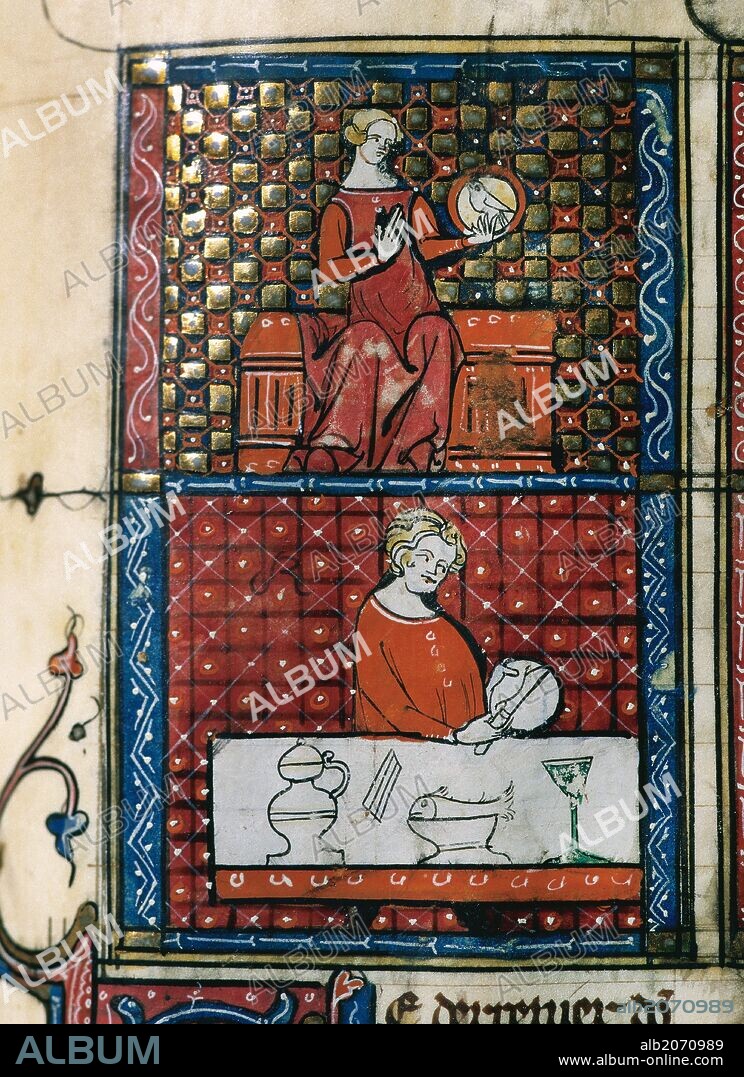 ALBUM
alb2070989
ALBUM
alb2070989
www.album-online.com